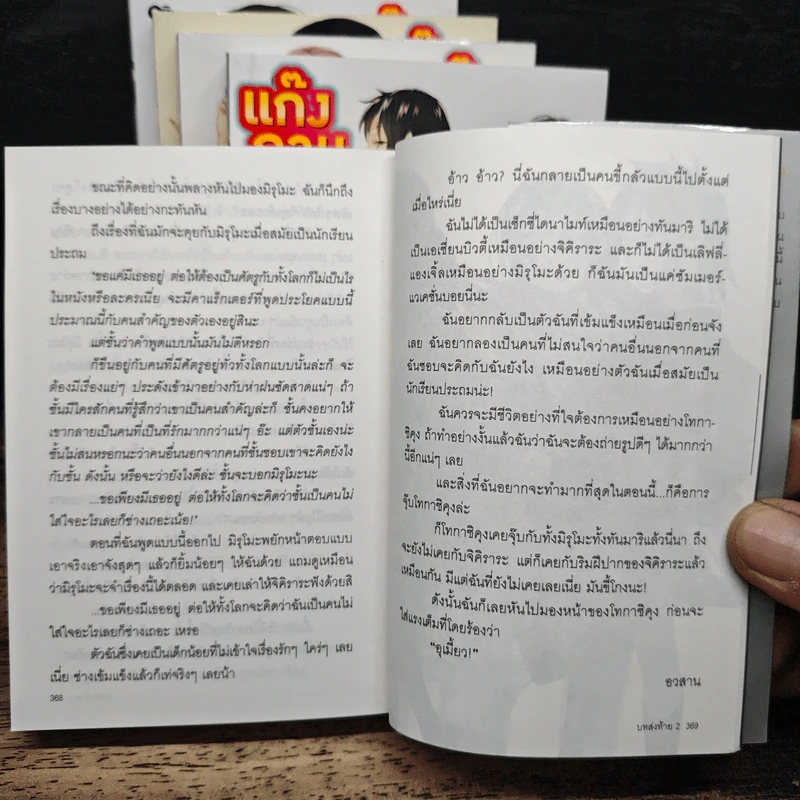 แก๊ง
ขณะที่คิดอย่างนั้นพลางหันไปมองมิรุโมะ ฉันก็นึกถึง
เรื่องบางอย่างได้อย่างกะทันหัน
ถึงเรื่องที่ฉันมักจะคุยกับมิรุโมะเมื่อสมัยเป็นนักเรียน
ประถม
"ขอแค่มีเธออยู่ ต่อให้ต้องเป็นศัตรูกับทั้งโลกก็ไม่เป็นไร
ในหนังหรือละครเนี่ย จะมีคาแร็กเตอร์ที่พูดประโยคแบบนี้
ประมาณนี้กับคนสำคัญของตัวเองอยู่สินะ
แต่ชั้นว่าคำพูดแบบนั้นมันไม่ดีหรอก
ก็ขืนอยู่กับคนที่มีศัตรูอยู่ทั่วทั้งโลกแบบนั้นล่ะก็ จะ
ต้องมีเรื่องแย่ๆ ประดังเข้ามาอย่างกับห่าฝนซัดสาดแน่ๆ ถ้า
ชั้นมีใครสักคนที่รู้สึกว่าเขาเป็นคนสำคัญล่ะก็ ชั้นคงอยากให้
เขากลายเป็นคนที่เป็นที่รักมากกว่าแน่ๆ อ๊ะ แต่ตัวชั้นเองน่ะ
ชั้นไม่สนหรอกนะว่าคนอื่นนอกจากคนที่ชั้นชอบเขาจะคิดยังไง
กับชั้น ดังนั้น หรือจะว่ายังไงดีล่ะ ชั้นจะบอกมิรุโมะนะ
...ขอเพียงมีเธออยู่ ต่อให้ทั้งโลกจะคิดว่าชั้นเป็นคนไม่
ใส่ใจอะไรเลยก็ช่างเถอะเน้อ!"
ตอนที่ฉันพูดแบบนี้ออกไป มิรุโมะพยักหน้าตอบแบบ
เอาจริงเอาจังสุดๆ แล้วก็ยิ้มน้อยๆ ให้ฉันด้วย แถมดูเหมือน
ว่ามิรุโมะจะจำเรื่องนี้ได้ตลอด และเคยเล่าให้จิคิราระฟังด้วยสิ
...ขอเพียงมีเธออยู่ ต่อให้ทั้งโลกจะคิดว่าฉันเป็นคนไม่
ใส่ใจอะไรเลยก็ช่างเถอะ เหรอ
ตัวฉันซึ่งเคยเป็นเด็กน้อยที่ไม่เข้าใจเรื่องรักๆ ใคร่ๆ เลย
เนี่ย ช่างเข้มแข็งแล้วก็เท่จริงๆ เลยน้า
368
อ้าว อ้าว? นี่ฉันกลายเป็นคนขี้กลัวแบบนี้ไปตั้งแต่
เมื่อไหร่เนี่ย
ฉันไม่ได้เป็นเซ็กซี่ไดนาไมท์เหมือนอย่างทันมาริ ไม่ได้
เป็นเอเชี่ยนบิวตี้เหมือนอย่างจิคิราระ และก็ไม่ได้เป็นเลิฟลี่-
แองเจิ้ลเหมือนอย่างมิรุโมะด้วย ก็ฉันมันเป็นแค่ซัมเมอร์-
แวเคชั่นบอยนี่นะ
ฉันอยากกลับเป็นตัวฉันที่เข้มแข็งเหมือนเมื่อก่อนจัง
เลย อยากลองเป็นคนที่ไม่สนใจว่าคนอื่นนอกจากคนที่
ฉันชอบจะคิดกับฉันยังไง เหมือนอย่างตัวฉันเมื่อสมัยเป็น
นักเรียนประถมน่ะ!
ฉันควรจะมีชีวิตอย่างที่ใจต้องการเหมือนอย่างโทกา-
ชิคุง ถ้าทำอย่างงั้นแล้วฉันว่าฉันจะต้องถ่ายรูปดีๆ ได้มากกว่า
นี้อีกแน่ๆ เลย
และสิ่งที่ฉันอยากจะทำมากที่สุดในตอนนี้...ก็คือการ
จุ๊บโทกาชิคุงล่ะ
ก็โทกาชิคุงเคยจุ๊บกับทั้งมิรุโมะทั้งทันมาริแล้วนี่นา ถึง
จะยังไม่เคยกับจิคิราระ แต่ก็เคยกับริมฝีปากของจิคิราระแล้ว
เหมือนกัน มีแต่ฉันที่ยังไม่เคยเลยเนี่ย มันขี้โกงนะ!
ดังนั้นฉันก็เลยหันไปมองหน้าของโทกาชิคุง ก่อนจะ
ใส่แรงเต็มที่โดยร้องว่า
"อุเมี้ยว!"
อวสาน
บทส่งท้าย 2 369